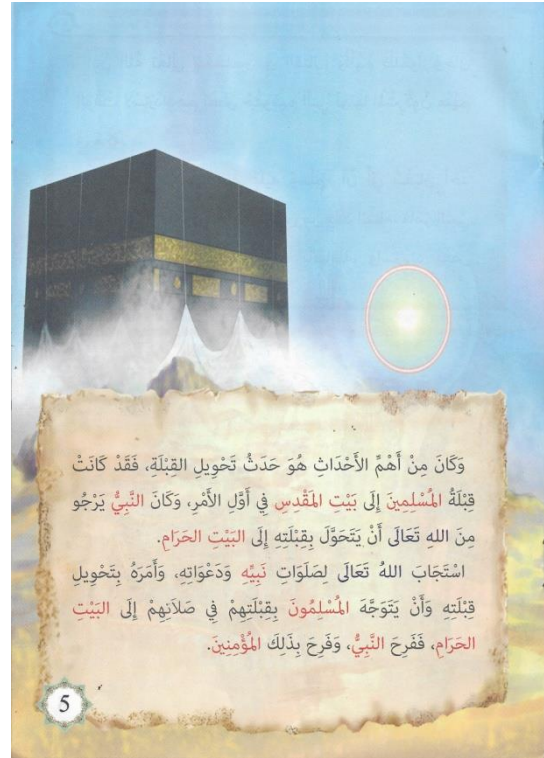 وَكَانَ مِنْ أَهْمِّ الأَحْدَاثِ هُوَ حَدَثُ تَحْوِيلِ القِبْلَةِ، فَقَدْ كَانَتْ
قِبْلَةُ المُسْلِمِينَ إِلَى بَيْتِ المَقْدِسِ فِي أَوَّلِ الأَمْرِ، وَكَانَ النَّبِيُّ يَرْجُو
مِنَ اللهِ تَعَالَى أَنْ يَتَحَوَّلَ بِقِبْلَتِهِ إِلَى البَيْتِ الحَرَامِ.
اسْتَجَابَ اللهُ تَعَالَى لِصَلَوَاتِ نَبِيِّهِ وَدَعْوَاتِهِ، وَأَمَرَهُ بِتَحْوِيلِ
قِبْلَتِهِ وَأَنْ يَتَوَجَّهَ المُسْلِمُونَ بِقِبْلَتِهِمْ فِي صَلَاتِهِمْ إِلَى البَيْتِ
الحَرَامِ، فَفَرِحَ النَّبِيُّ، وَفَرِحَ بِذَلِكَ المُؤْمِنِينَ.
5